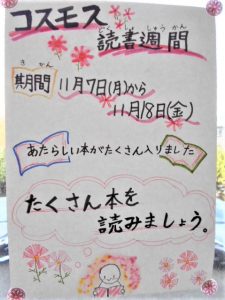 コスモス
どくしょしゅうかん
読書週間
きかん
期間 11月7日(月)から
11月18日(金)
あたらしい本がたくさん入りました
たくさん本を
読みましょう。